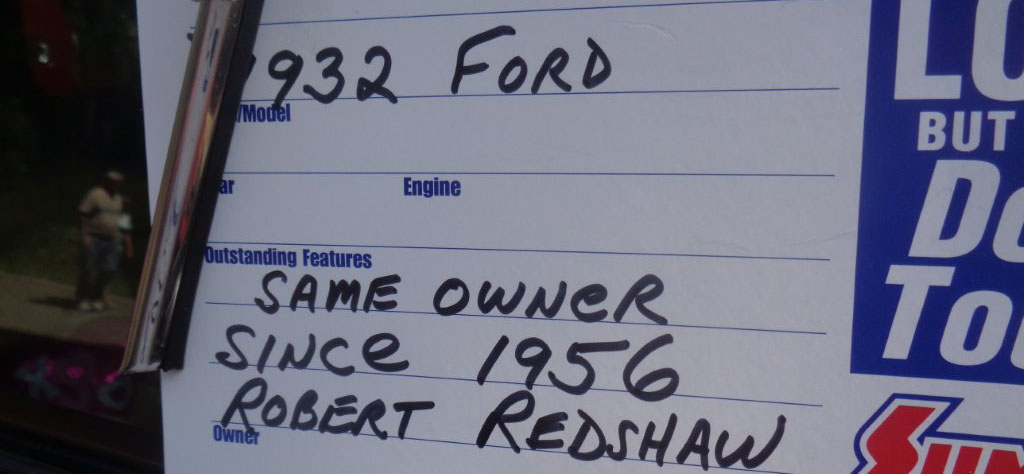 1932 FORD
/Model
ar Engine
Outstanding Features
SAME OWNER
SINCE 1956
ROBERT REDSHAW
Owner
LO
BUT
DO
TOU
SUN